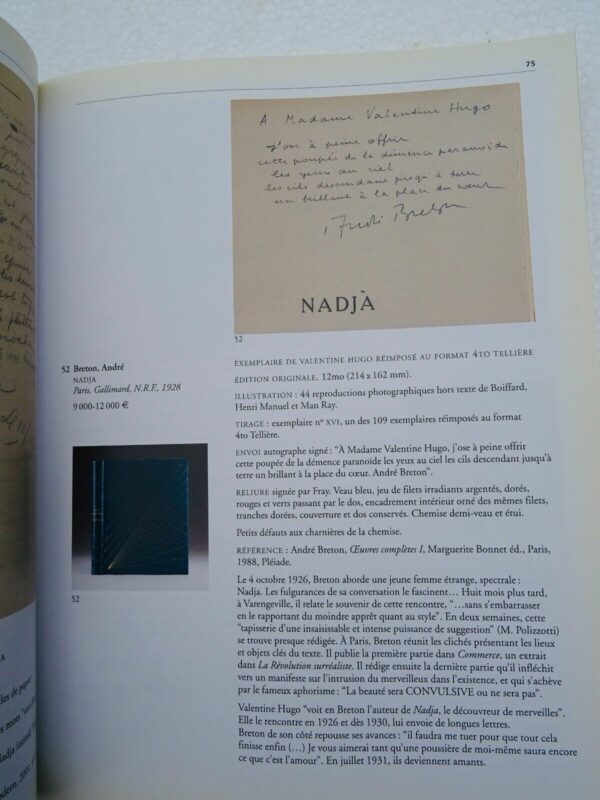 75
A Madame Valentine Hugo
j'ose à peine offrir
cette poupée de la démence paranoïde
les yeux au ciel
les cils descendant jusqu'à terre
un brillant à la place du cœur
André Breton
NADJA
52
52 Breton, André
NADJA
Paris, Gallimard, N.R.F., 1928
9 000-12 000 €
52
EXEMPLAIRE DE VALENTINE HUGO RÉIMPOSÉ AU FORMAT 4TO TELLIÈRE
ÉDITION ORIGINALE. 12mo (214 x 162 mm).
ILLUSTRATION : 44 reproductions photographiques hors texte de Boiffard,
Henri Manuel et Man Ray.
TIRAGE : exemplaire n° XVI, un des 109 exemplaires réimposés au format
4to Tellière.
ENVOI autographe signé : "À Madame Valentine Hugo, j'ose à peine offrir
cette poupée de la démence paranoïde les yeux au ciel les cils descendant jusqu'à
terre un brillant à la place du cœur. André Breton".
RELIURE signée par Fray. Veau bleu, jeu de filets irradiants argentés, dorés,
rouges et verts passant par le dos, encadrement intérieur orné des mêmes filets,
tranches dorées, couverture et dos conservés. Chemise demi-veau et étui.
Petits défauts aux charnières de la chemise.
RÉFÉRENCE : André Breton, Œuvres complètes I, Marguerite Bonnet éd., Paris,
1988, Pléiade.
Le 4 octobre 1926, Breton aborde une jeune femme étrange, spectrale :
Nadja. Les fulgurances de sa conversation le fascinent... Huit mois plus tard,
à Varengeville, il relate le souvenir de cette rencontre, "...sans s'embarrasser
en le rapportant du moindre apprêt quant au style". En deux semaines, cette
"tapisserie d'une insaisissable et intense puissance de suggestion" (M. Polizzotti)
se trouve presque rédigée. À Paris, Breton réunit les clichés présentant les lieux
et objets clés du texte. Il publie la première partie dans Commerce, un extrait
dans La Révolution surréaliste. Il rédige ensuite la dernière partie qu'il infléchit
vers un manifeste sur l'intrusion du merveilleux dans l'existence, et qui s'achève
par le fameux aphorisme : "La beauté sera CONVULSIVE ou ne sera pas".
Valentine Hugo "voit en Breton l'auteur de Nadja, le découvreur de merveilles".
Elle le rencontre en 1926 et dès 1930, lui envoie de longues lettres.
Breton de son côté repousse ses avances : "il faudra me tuer pour que tout cela
finisse enfin (...) Je vous aimerai tant qu'une poussière de moi-même saura encore
ce que c'est l'amour". En juillet 1931, ils deviennent amants.